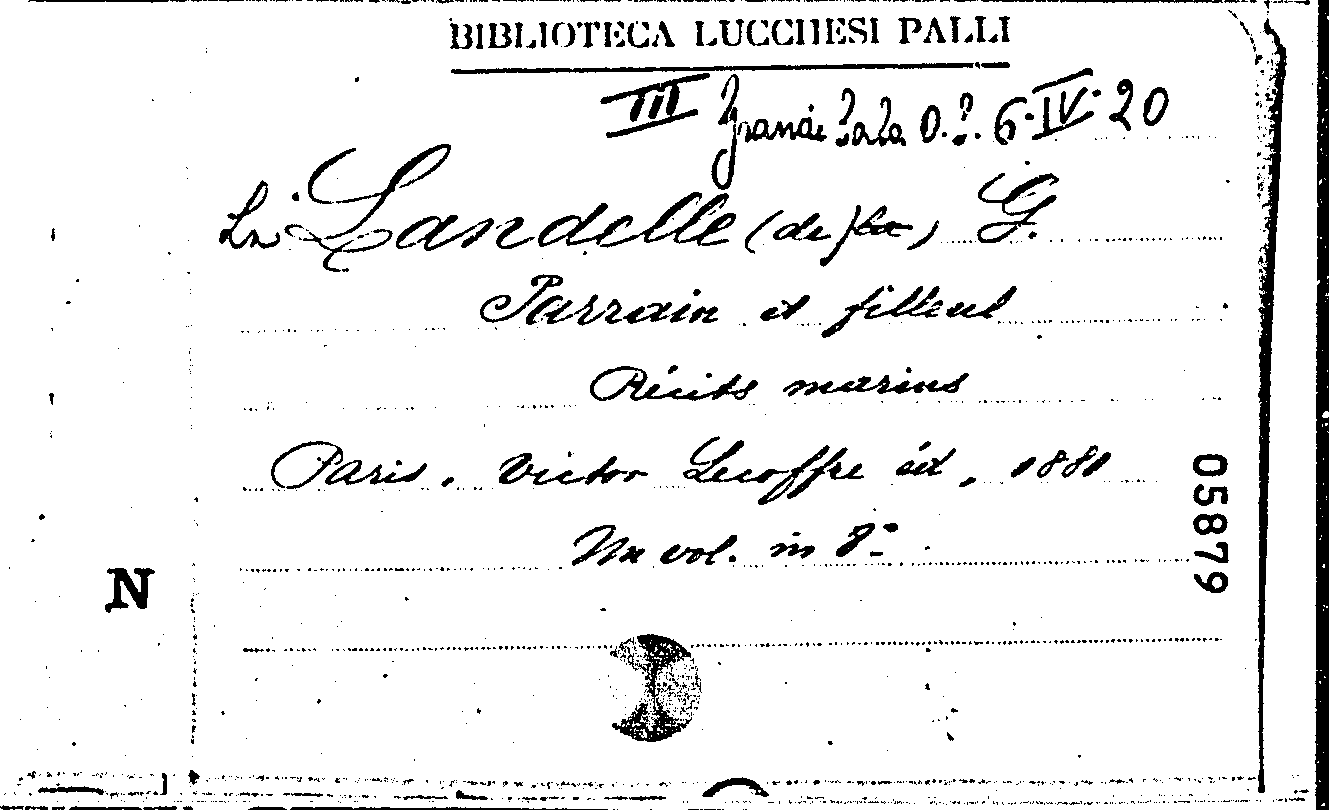 BIBLIOTECA LUCCHESI PALLI
III Grande Sala O.S. 6.IV.20
La Landelle (de la) G.
Parrain et filleul
Récits marins
Paris. Victor Lecoffre éd, 1881
Un vol. in 8º
05879
N